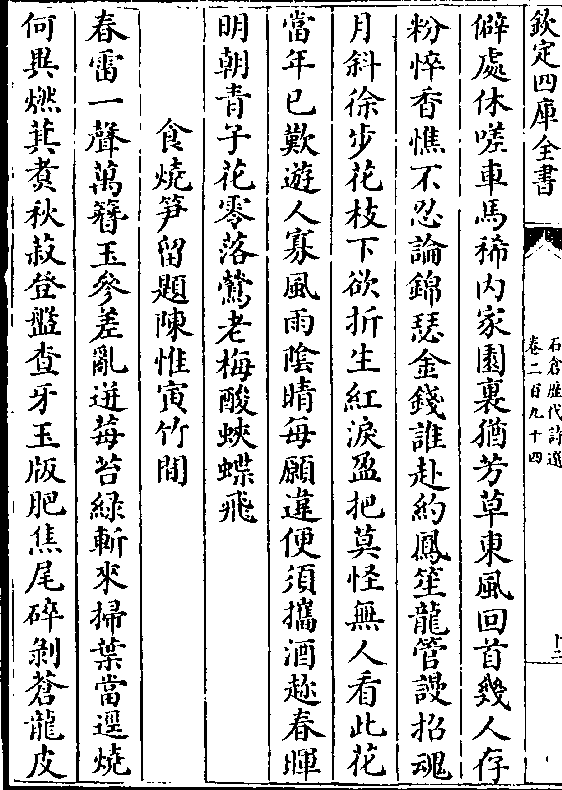 欽定四庫全書
石倉歴代詩選
卷二百九十四
僻處休嗟車馬稀内家園裏猶芳草東風回首幾人存
粉悴香憔不忍論錦瑟金錢誰赴約鳳笙龍管謾招魂
月斜徐步花枝下欲折生紅淚盈把莫怪無人看此花
當年已歎遊人寡風雨陰晴每願違便須攜酒趂春暉
明朝青子花零落鶯老梅酸蛺蝶飛
食燒笋留題陳惟寅竹間
春雷一聲萬簪玉參差亂迸莓苔緑斬來掃葉當逕燒
何異燃萁煑秋菽登盤查牙玉版肥焦尾碎剝蒼龍皮